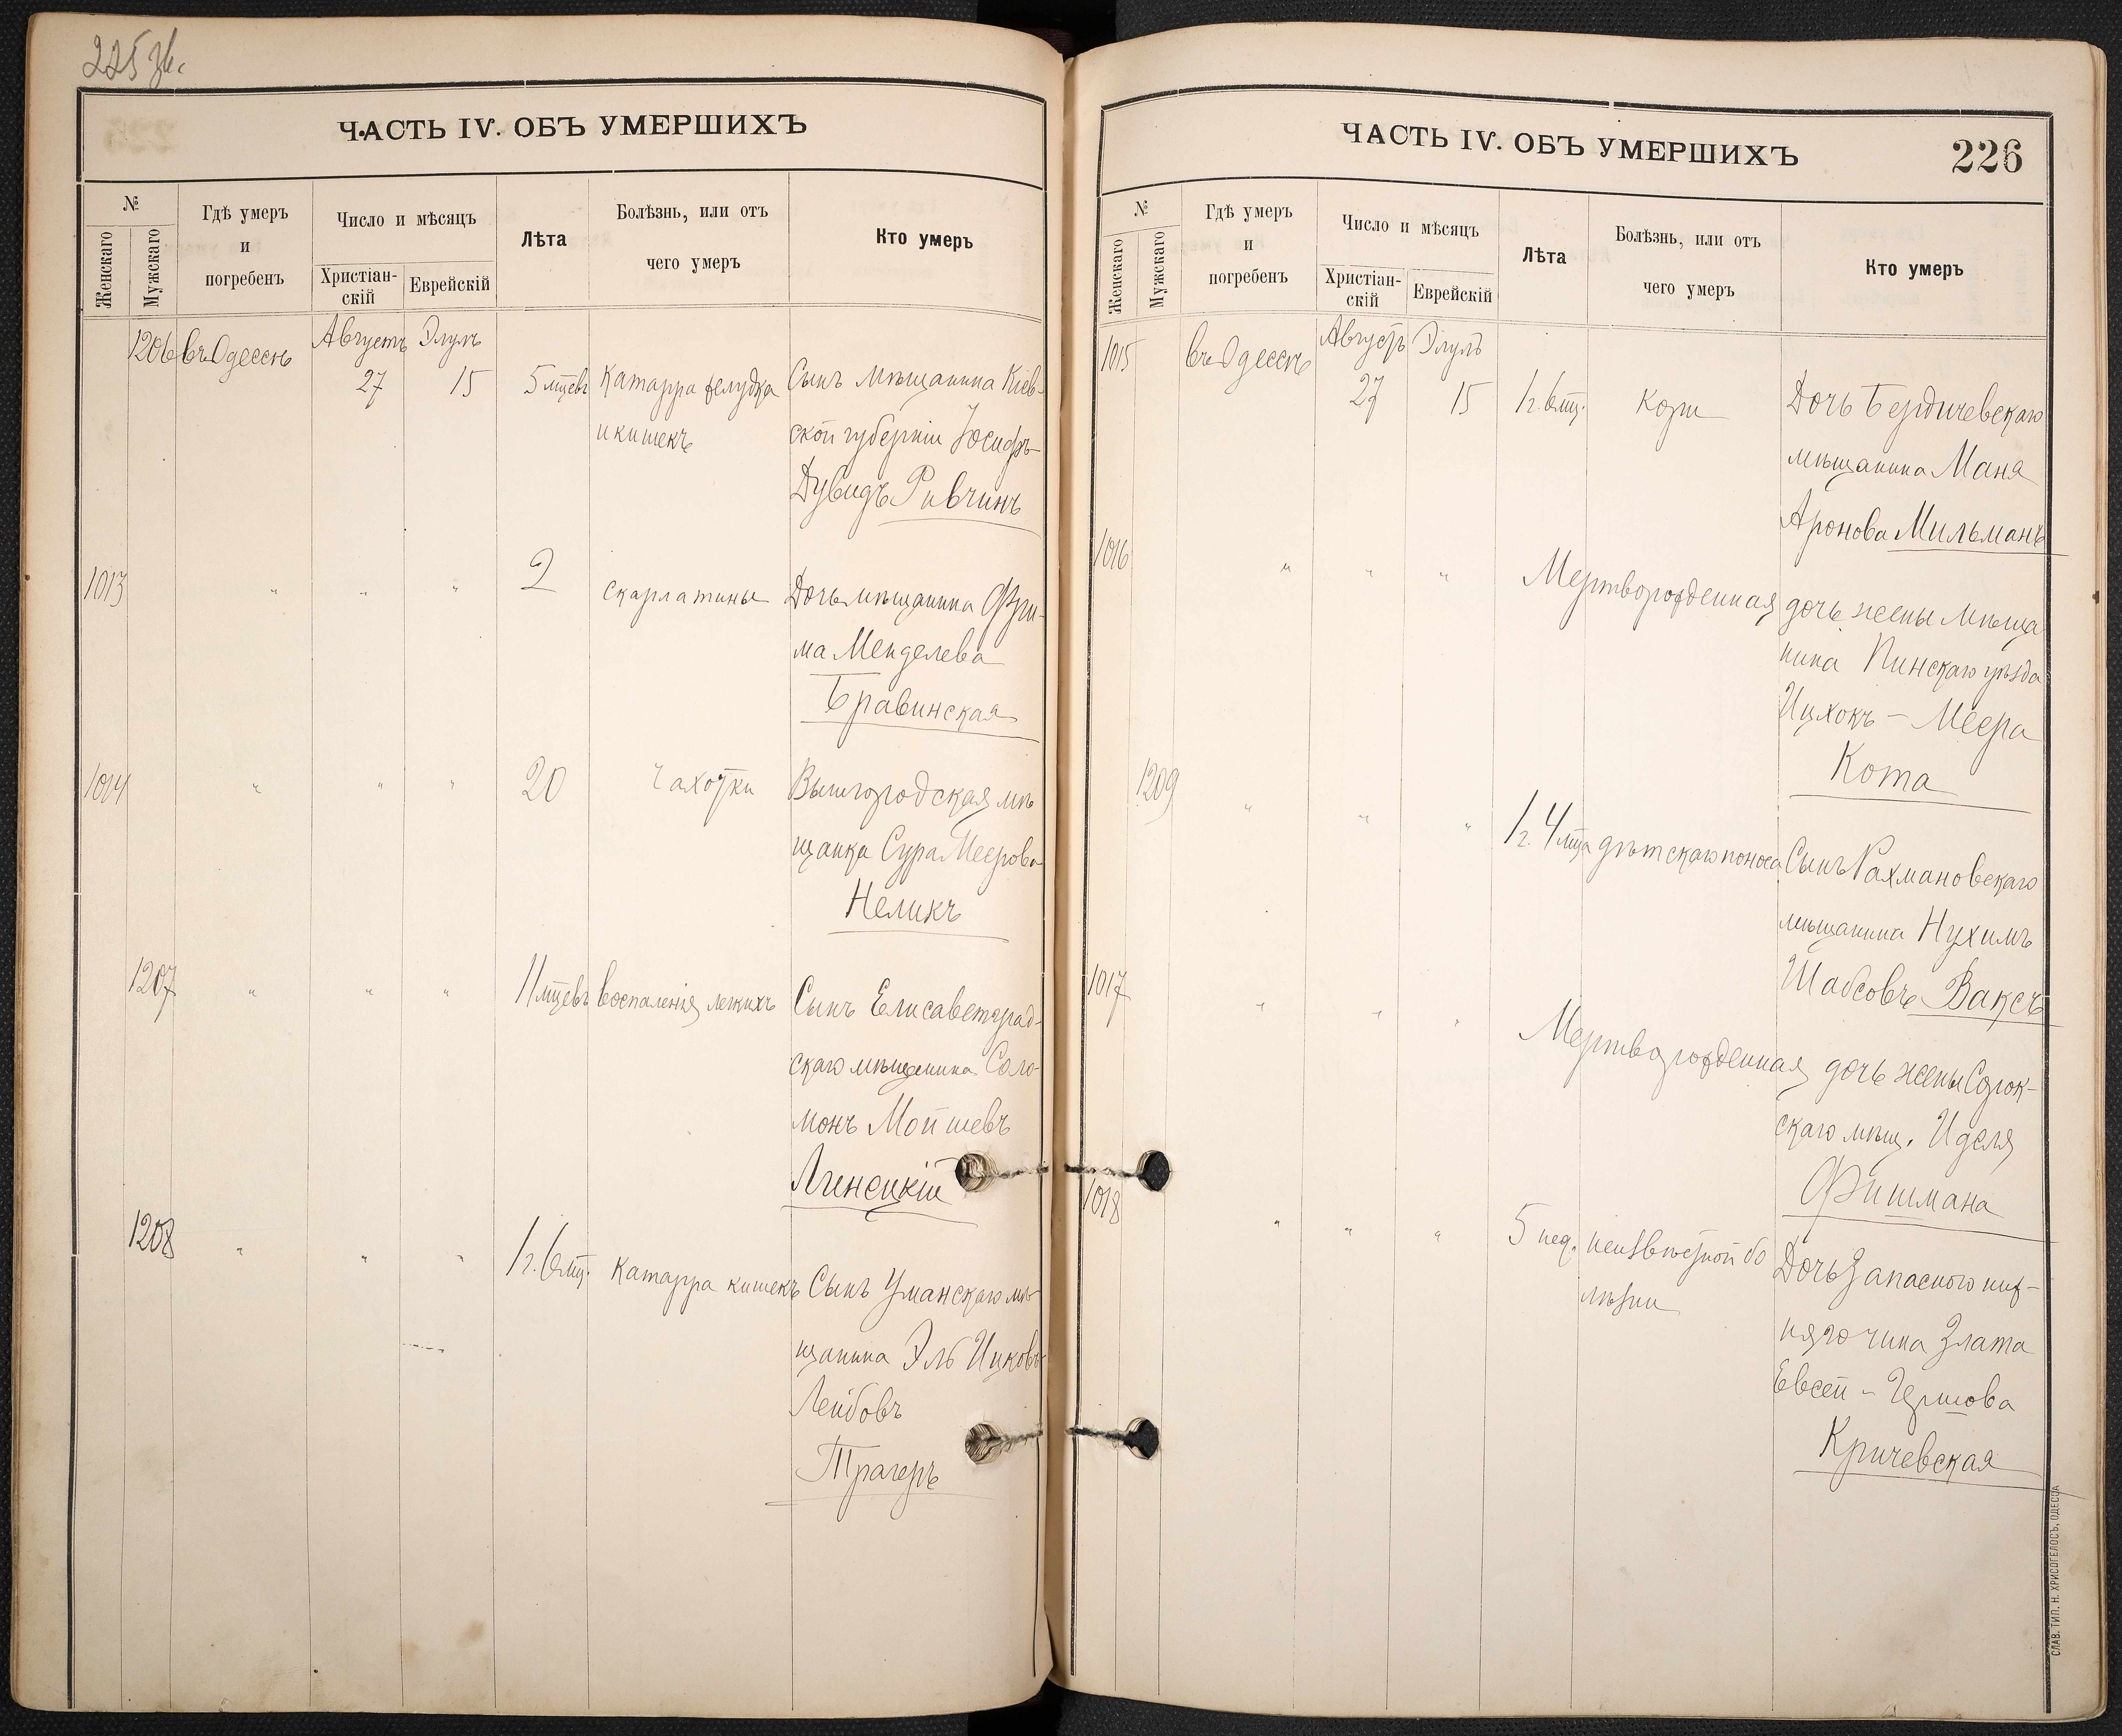 225 зв.
ЧАСТЬ IV. ОБЪ УМЕРШИХЪ
№
Женскаго
Мужскаго
Гдѣ умеръ
и
погребенъ
Число и мѣсяцъ
Христіан-
скій
Еврейскій
Лѣта
Болѣзнь, или отъ
чего умеръ
Кто умеръ
1206 въ Одессѣ Августъ Элулъ
27 15 5 мцевъ Катарра желудка Сынъ мѣщанина Кіев-
и кишекъ ской губерніи Іосифъ-
Дувидъ Ривчинъ
1013 " " " 2 скарлатины Дочь мѣщанина Фри-
ма Менделева
Бравинская
1014 " " " 20 чахотки Вышгородская мѣ
щанка Сура Меерова
Неликъ
1207 " " " 11 мцевъ воспаленія легкихъ Сынъ Елисаветград-
скаго мѣщанина Соло-
монъ Мойшевъ
1208 " " " 1 г. 6 мц. Катарра кишекъ Сынъ Уманскаго мѣ
щанина Эль Ицковъ
Лейбовъ
Трагеръ
ЧАСТЬ IV. ОБЪ УМЕРШИХЪ
226
№
Женскаго
Мужскаго
Гдѣ умеръ
и
погребенъ
Число и мѣсяцъ
Христіан-
скій
Еврейскій
Лѣта
Болѣзнь, или отъ
чего умеръ
Кто умеръ
1015 въ Одессѣ Августъ Элулъ
27 15 1 г. 6 мц. Кори Дочь Бердичевскаго
мѣщанина Маня
Аронова Мильманъ
1016 " " " Мертворожденная дочь жены мѣща
нина Пинскаго уѣзда
Ицхокъ - Меера
Кота
1209 " " " 1 г. 4 мца дѣтскаго поноса Сынъ Рахмановскаго
мѣщанина Нухимъ
Шабсовъ Ваксъ
1017 " " " Мертворожденная дочь жены Сорок-
скаго мѣщ. Иделя
Фишмана
1018 " " " 5 нед. неизвѣстной бо Дочь Запасного ниж-
лѣзни няго чина Злата
Евсей - Гершова
Кричевская
СЛАВ. ТИП. Н. ХРИСОГЕЛОСЪ, ОДЕССА